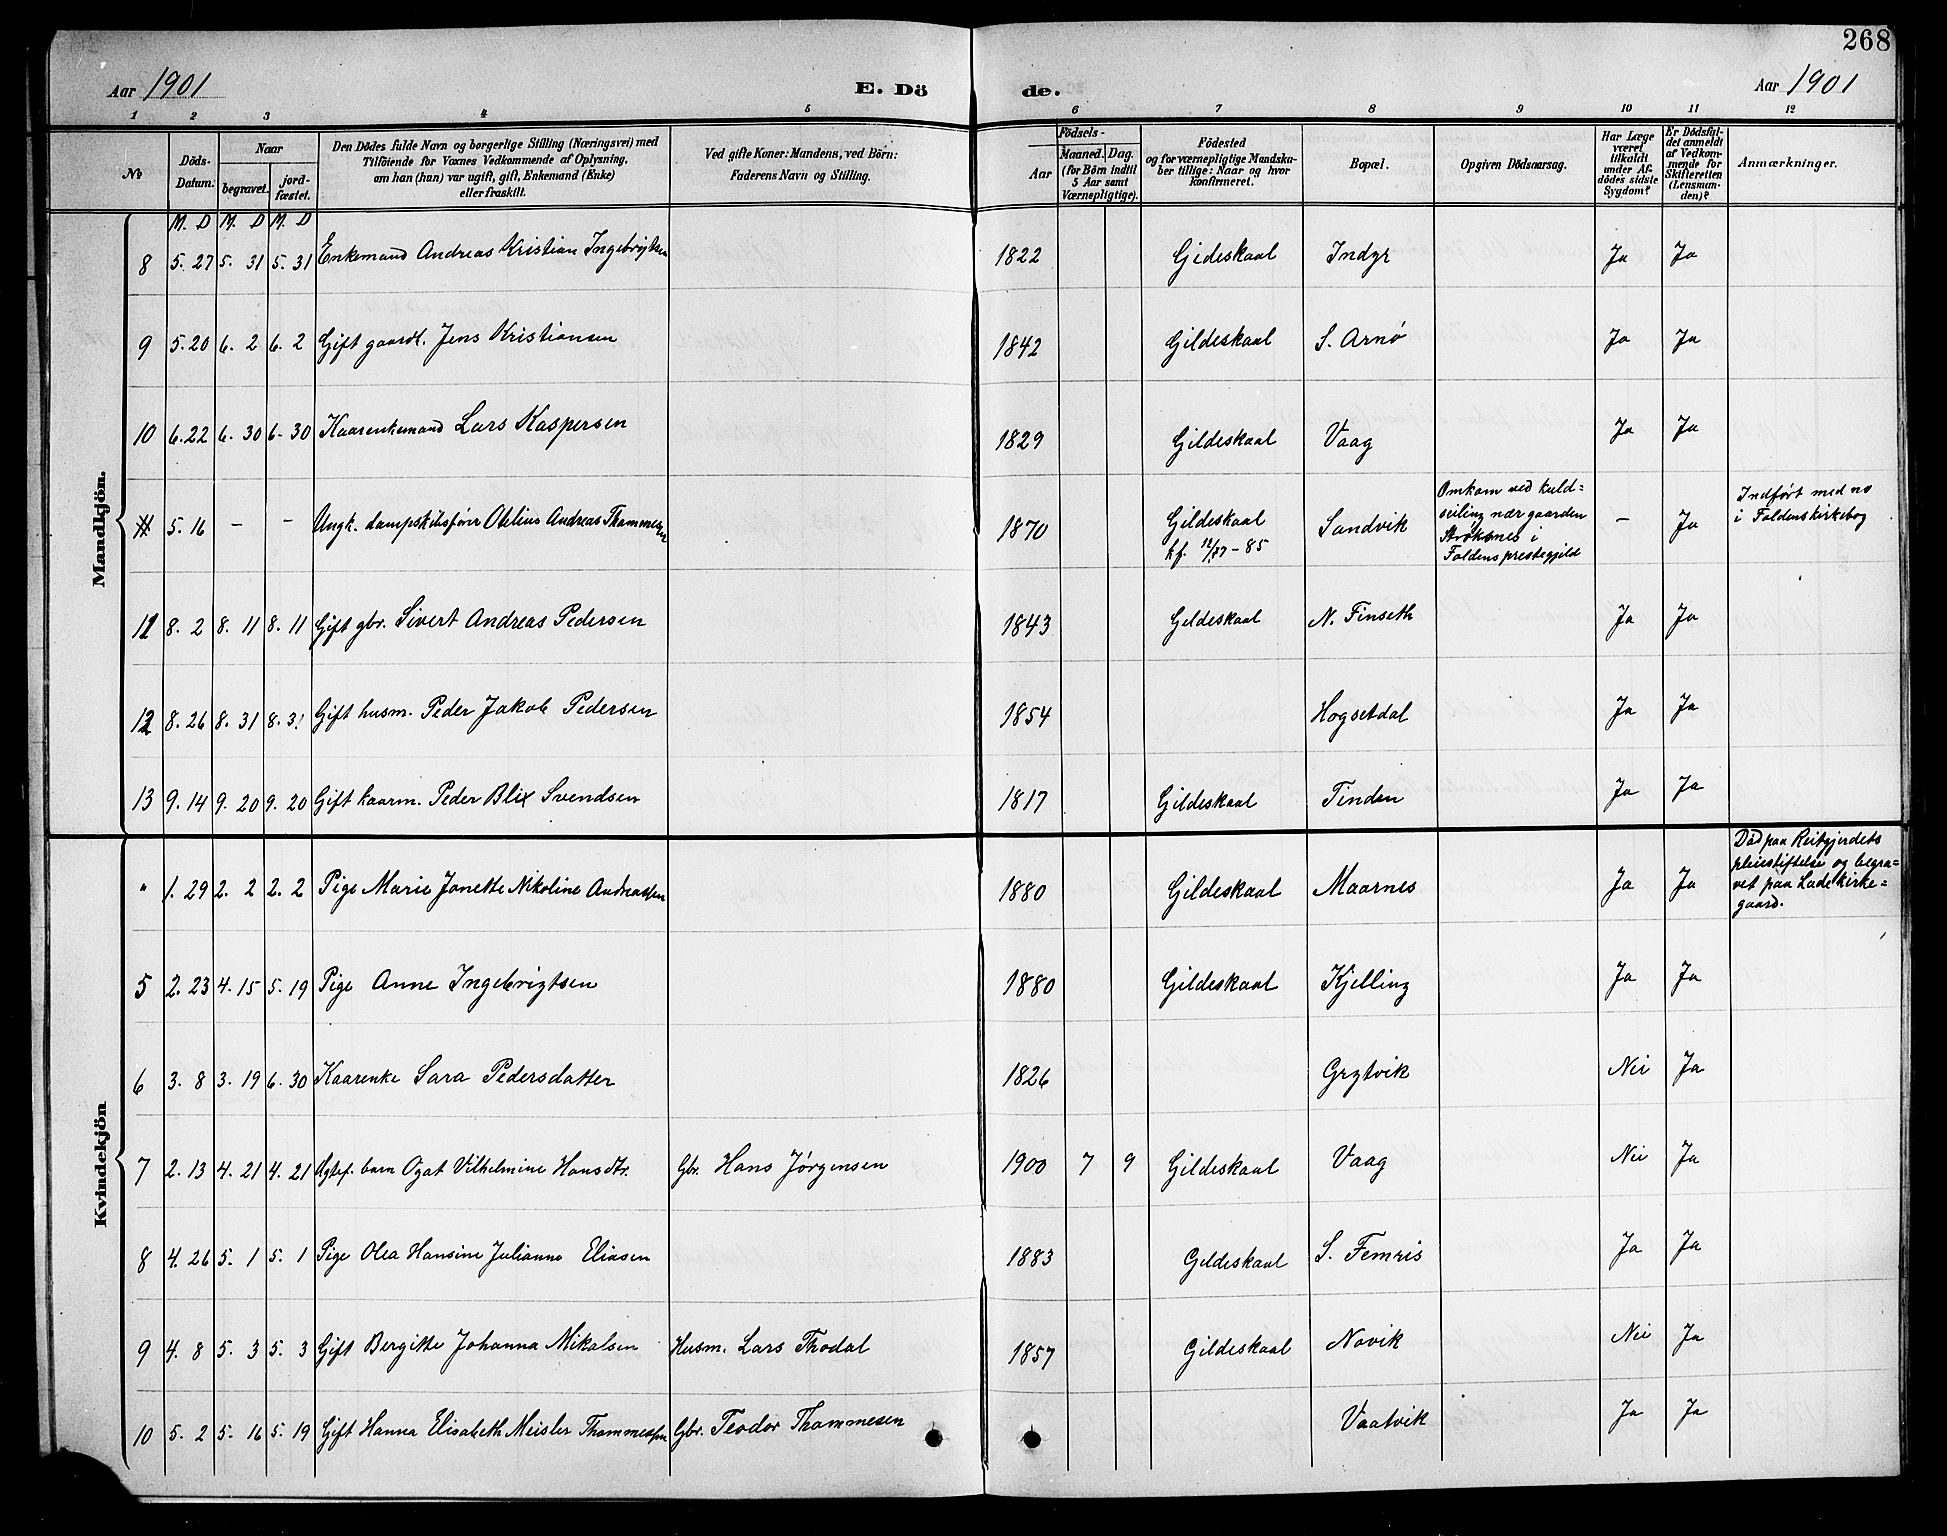 268
Aar 1901 E. Dö de. Aar 1901
1 2 3 4 5 6 7 8 9 10 11 12
No
Döds-Datum.
Naar
begravet.
jord-fæstet.
Den Dödes fulde Navn og borgerlige Stilling (Næringsvei) med
Tilföiende for Voxnes Vedkommende af Oplysning,
om han (hun) var ugift, gift, Enkemand (Enke)
eller fraskilt.
Ved gifte Koner: Mandens, ved Börn:
Faderens Navn og Stilling.
Födsels-
Aar
Maaned. Dag.
(for Börn indtil
5 Aar samt
Værnepligtige).
Födested
og for værnepligtige Mandska-
ber tillige: Naar og hvor
konfirmeret.
Bopæl.
Opgiven Dödsaarsag.
Har Læge
været
tilkaldt
under Af-
dödes sidste
Sygdom?
Er Dödsfal-
det anmeldt
af Vedkom-
mende for
Skifteretten
(Lensman-
den)?
Anmærkninger.
M. D M. D M. D
Mandkjön.
8 5. 27 5. 31 5. 31 Enkemand Andreas Kristian Ingebrigtsen 1822 Gideskaal Indyr Ja Ja
9 5. 20 6. 2 6. 2 Gift gaardt. Jens Kristiansen 1842 Gildeskaal S. Arnø Ja Ja
10 6. 22 6. 30 6. 30 Kaarenkemand Lars Kaspersen 1829 Gildeskaal Vaag Ja Ja
5. 16 – – Ungk. dampskibsfører Otelius Andreas Thommesen 1870 Gildeskaal Sandvik – Ja
kf. 85
Omkom ved kuld=
seiling nær gaarden
Strøksnes i
Foldens prestegjeld
Indført med no
i Foldens kirkebog
11 8. 2 8. 11 8. 11 Gift gbr. Sivert Andreas Pedersen 1843 Gildeskaal N. Finseth Ja Ja
12 8. 26 8. 31 8. 31 Gift husm. Peder Jakob Pedersen 1854 Hogsetdal Ja Ja
13 9. 14 9. 20 9. 20 Gift kaarm. Peder Blix Svendsen 1817 Gildeskaal Tinden Ja Ja
Kvindekjön
" 1. 29 2. 2 2. 2 Pige Marie Janette Nikoline Andreassen 1880 Gildeskaal Maarnes Ja Ja
Død paa Reitgjerdets
pleiestiftelse og begra=
vet paa Lade kirke=
gaard.
5 2. 23 4. 15 5. 19 Pige Anne Ingebrigtsen 1880 Gildeskaal Kjelling Ja Ja
6 3. 8 3. 19 6. 30 Kaarenke Sara Pedersdatter 1826 Grytvik Nei Ja
7 2. 13 4. 21 4. 21 Ægtef. barn Ogat Vilhelmine Hansdtr. Gbr. Hans Jørgensen 1900 7 9 Gildeskaal Vaag Nei Ja
8 4. 26 5. 1 5. 1 Pige Olea Hansine Julianne Eliasen 1883 Gildeskaal S. Femris Ja Ja
9 4. 8 5. 3 5. 3 Gift Bergitte Johanna Mikalsen Husm. Lars Thodal 1857 Gildeskaal Novik Nei Ja
10 5. 2 5. 16 5. 19 Gift Hanna Elisabeth Meisler Thommessen Gbr. Teodor Thommesen Vaatvik Ja Ja